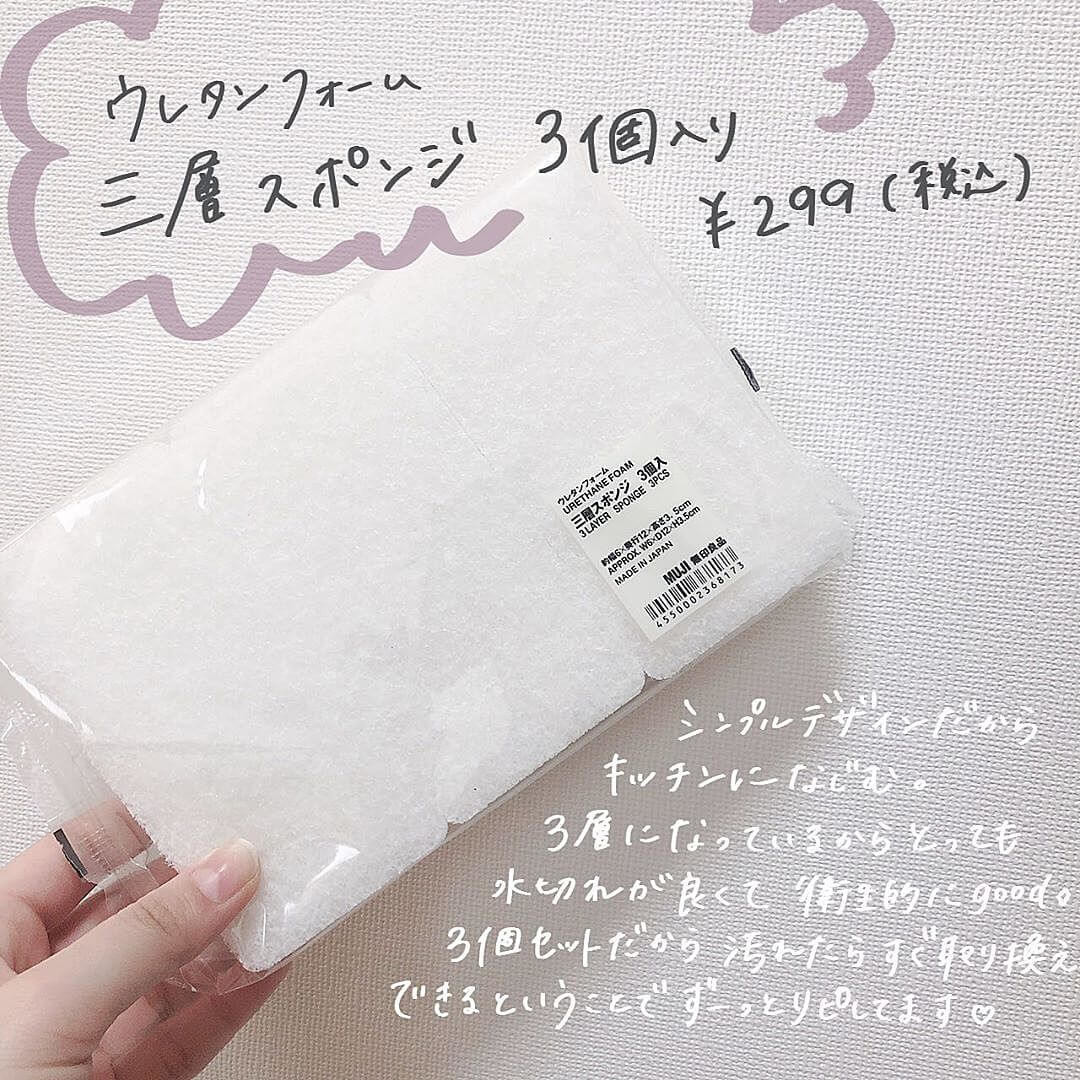 ウレタンフォーム
三層スポンジ 3個入り
¥299(税込)
ウレタンフォーム
URETHANE FOAM
三層スポンジ 3個入
3 LAYER SPONGE 3PCS
約幅6×奥行12×高さ3.5cm
APPROX. W6×D12×H3.5cm
MADE IN JAPAN
MUJI 無印良品
4550002368173
シンプルデザインだから
キッチンになじむ。
3層になっているからとっても
水切れが良くて衛生的にgood。
3個セットだから汚れたらすぐ取り換え
できるということでずーっとリピしてます♡